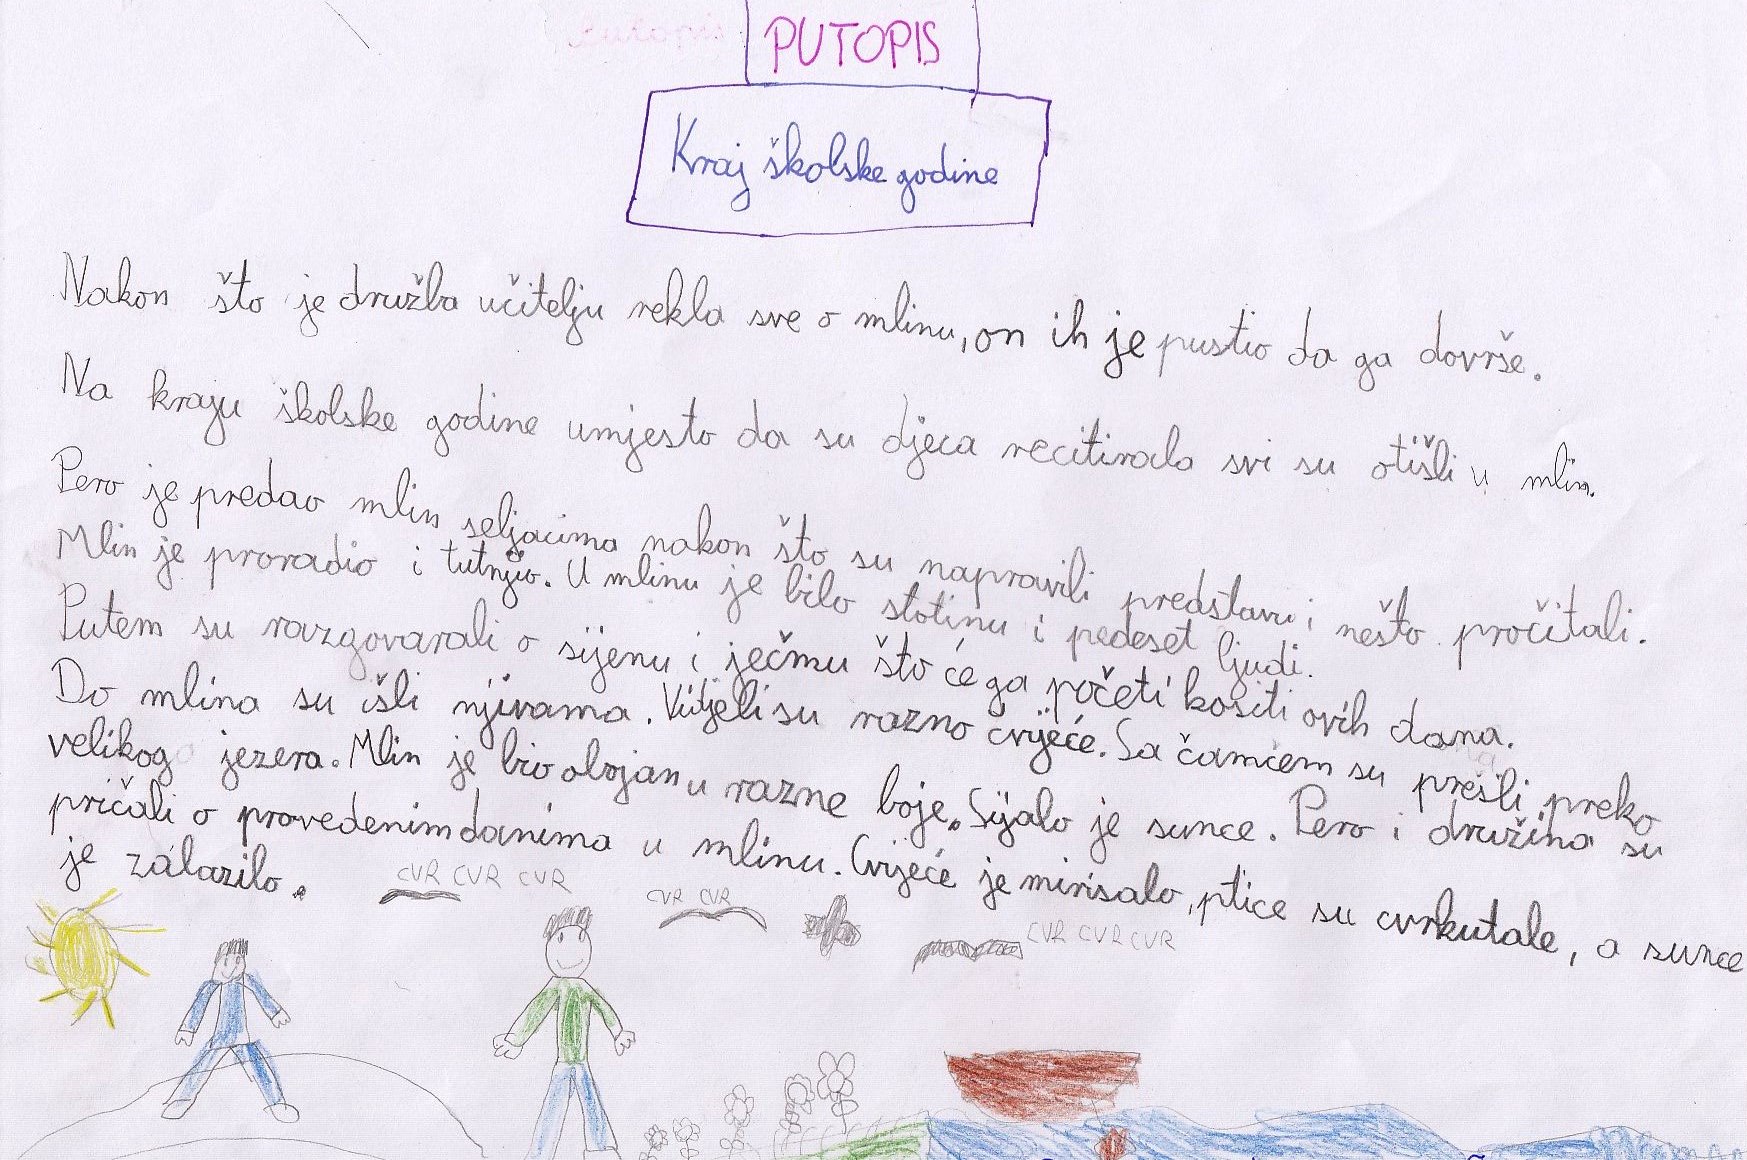 PUTOPIS
Kraj školske godine
Nakon što je družba učitelju rekla sve o mlinu, on ih je pustio da ga dovrše.
Na kraju školske godine umjesto da su djeca recitirala svi su otišli u mlin.
Pero je predao mlin seljacima nakon što su napravili predstavu i nešto pročitali.
Mlin je proradio i tutnjio. U mlinu je bilo stotinu i pedeset ljudi.
Putem su razgovarali o sijenu i ječmu što će ga početi kositi ovih dana.
Do mlina su išli njivama. Vidjeli su razno cvijeće. Sa čamcem su prešli preko
velikog jezera. Mlin je bio obojan u razne boje. Sijalo je sunce. Pero i družina su
pričali o provedenim danima u mlinu. Cvijeće je mirisalo, ptice su cvrkutale, a sunce
je zalazilo.
CVR CVR CVR
CVR CVR
CVR CVR CVR